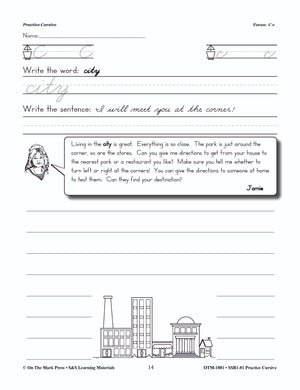 Practice Cursive Focus: C c
Name:
C C c c
Write the word: city
city
Write the sentence: I will meet you at the corner!
Living in the city is great. Everything is so close. The park is just around the
corner, so are the stores. Can you give me directions to get from your house to
the nearest park or a restaurant you like? Make sure you tell me whether to
turn left or right at the corners! You can give the directions to someone at home
to test them. Can they find your destination?
Jamie
© On The Mark Press • S&S Learning Materials 14 OTM-1801 • SSR1-01 Practice Cursive